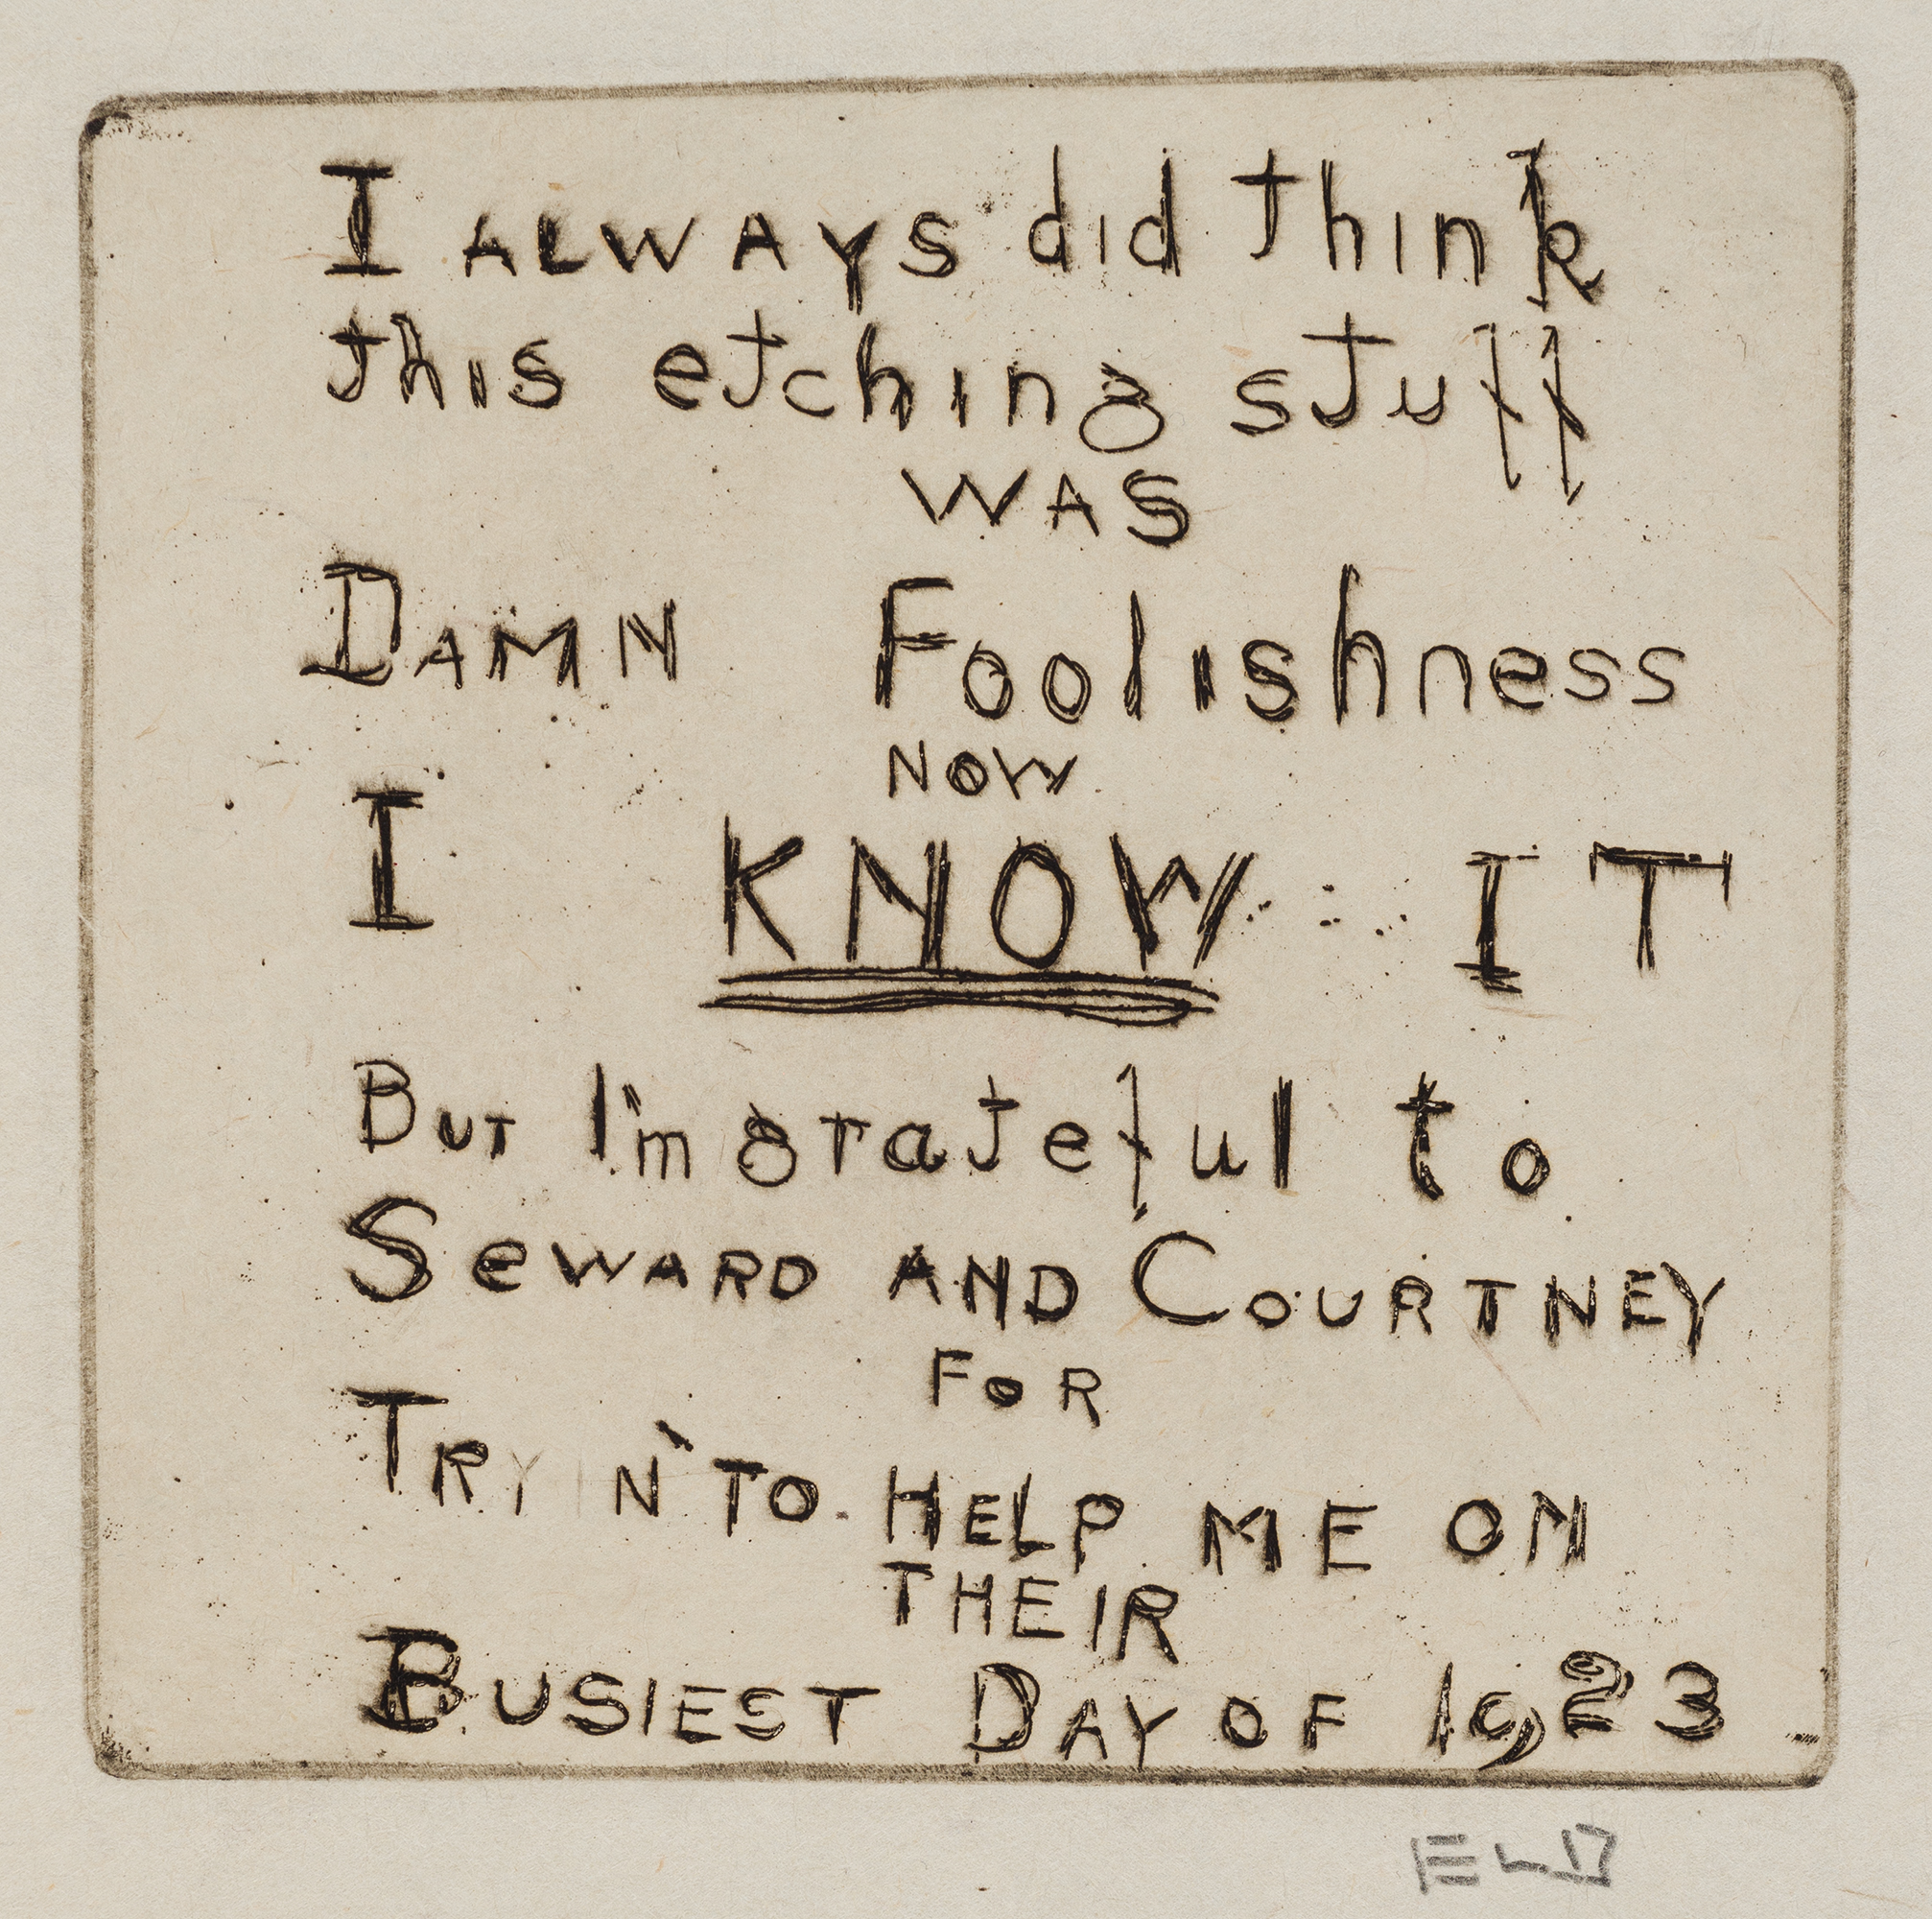 I ALWAYS did think
this etching stuff
WAS
DAMN Foolishness
NOW
I KNOW IT
BUT I'm grateful to
SeWARD AND COURTNEY
FOR
TRYIN' TO HELP ME ON
THEIR
BUSIEST DAY OF 1923
ELD